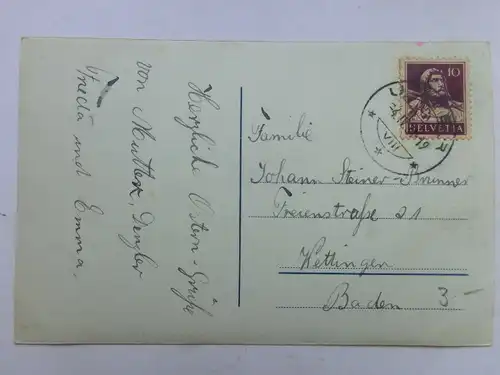 Herzliche Ostern-Grüße
von Mutter, Dengler
Frieda und Emma.
10
HELVETIA
VIII
Familie
Johann Steiner-Brunner
Freienstraße 21
Wettingen
Baden
3.-